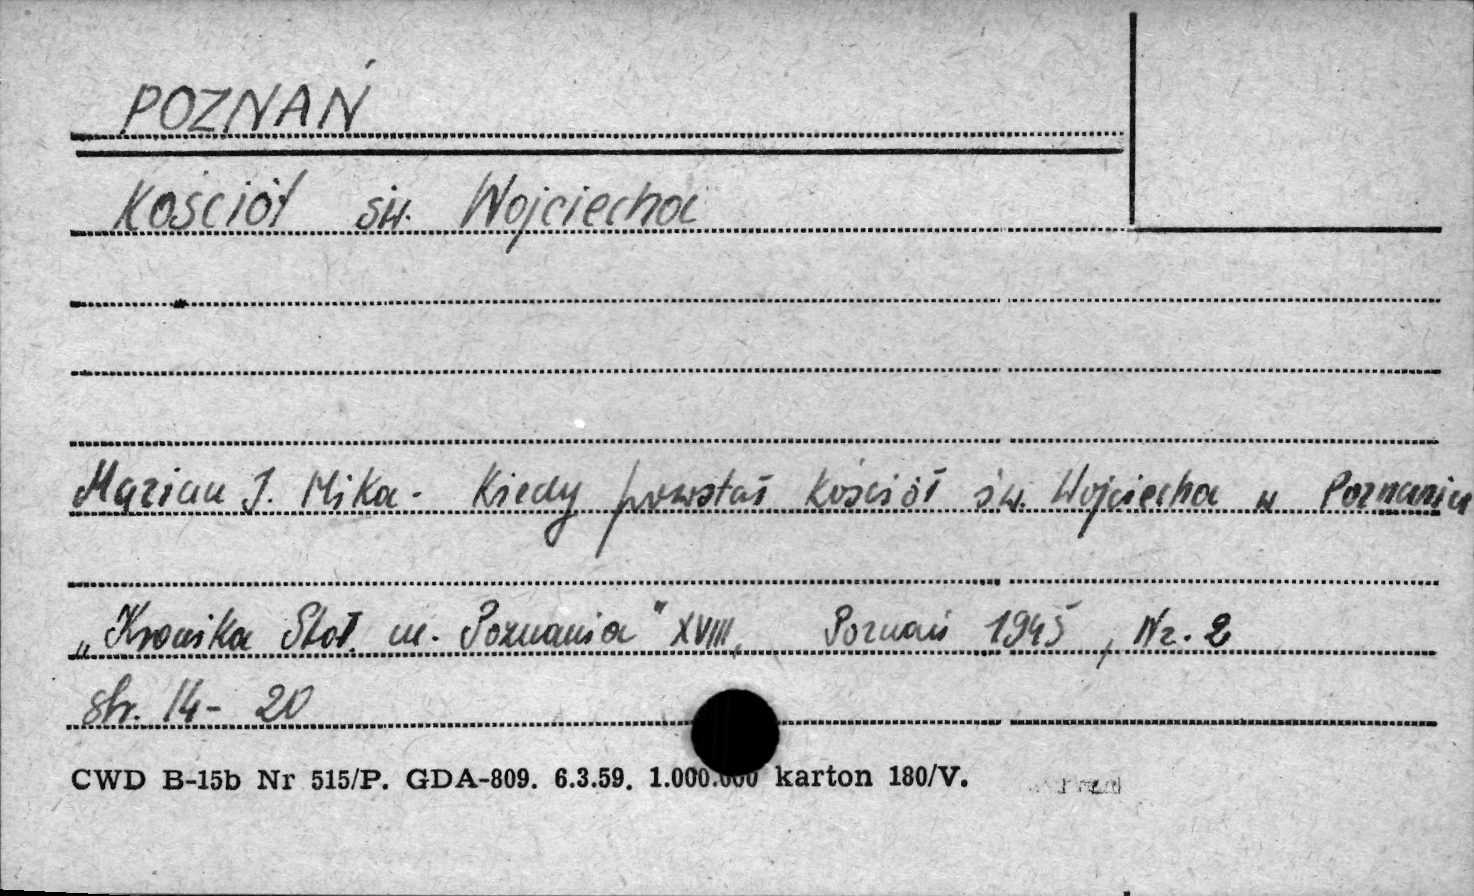 POZNAŃ
Kościół św. Wojciecha
Marian J. Mika - Kiedy powstał kościół św. Wojciecha w Poznaniu
„Kronika Stoł. m. Poznania" XVIII, Poznań 1945, Nr. 2
str. 14 - 20
CWD B-15b Nr 515/P. GDA-809. 6.3.59. 1.000.000 karton 180/V.